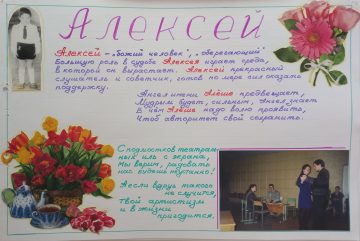 Алексей
Алексей – „божий человек", „оберегающий"
Большую роль в судьбе Алексея играет среда,
в которой он вырастает. Алексей прекрасный
слушатель и советчик, готов по мере сил оказать
поддержку.
Ангел имени Алёше предвещает,
Мудрым будет, сильным, Ангел знает
В чём Алёше надо волю проявить,
Чтоб авторитет свой сохранить.
С подмостков театраль-
ных иль с экрана,
Мы верим, радовать
нас будешь неустанно!
А если вдруг такого
не случится,
Твой артистизм
и в жизни
пригодится.